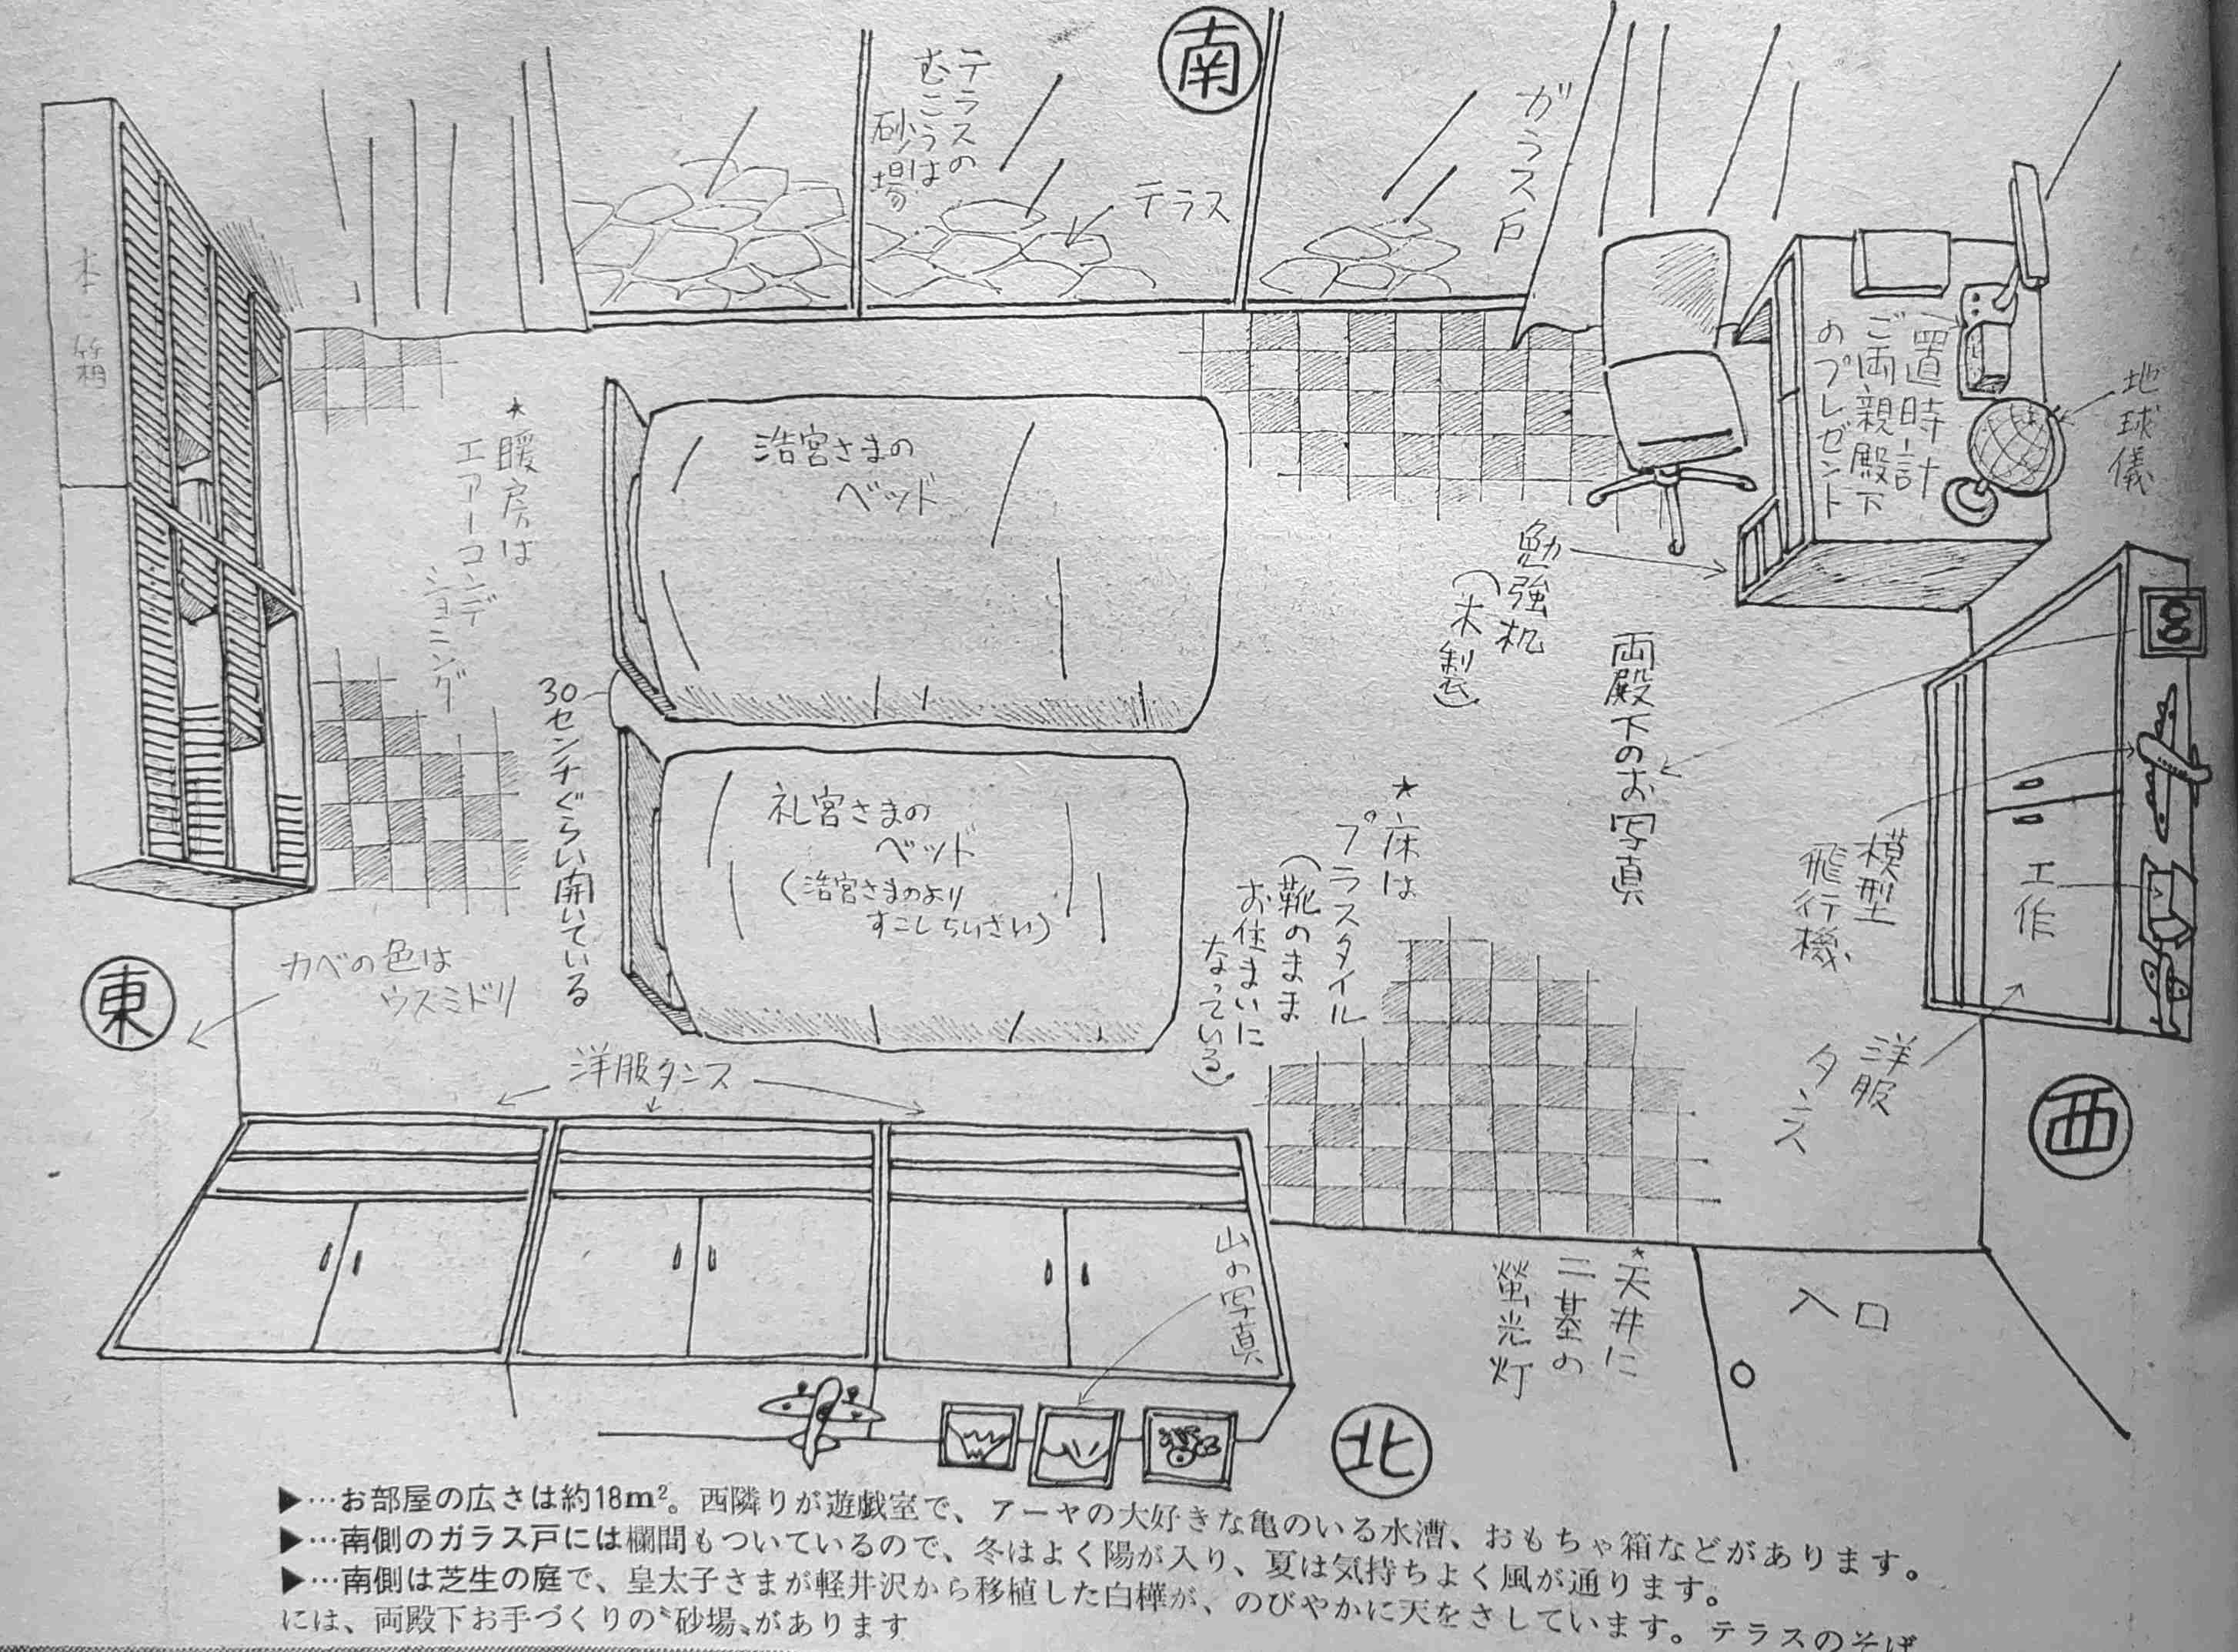 南
テラスの
むこうは
砂場
テラス
ガラス戸
本箱
置時計
ご両親殿下
のプレゼント
地球儀
★暖房は
エアーコンデ
ショニング
浩宮さまの
ベッド
勉強机
(木製)
両殿下のお写真
30センチぐらい開いている
礼宮さまの
ベッド
(浩宮さまのより
すこしちいさい)
★床は
プラスタイル
(靴のまま
お住まいに
なっている)
模型
飛行機
工作
洋服
タンス
東
カベの色は
ウスミドリ
西
洋服タンス
山の写真
★天井に
二基の
螢光灯
入口
北
▶…お部屋の広さは約18m²。西隣りが遊戯室で、アーヤの大好きな亀のいる水漕、おもちゃ箱などがあります。
▶…南側のガラス戸には欄間もついているので、冬はよく陽が入り、夏は気持ちよく風が通ります。
▶…南側は芝生の庭で、皇太子さまが軽井沢から移植した白樺が、のびやかに天をさしています。テラスのそば
には、両殿下お手づくりの〝砂場〟があります